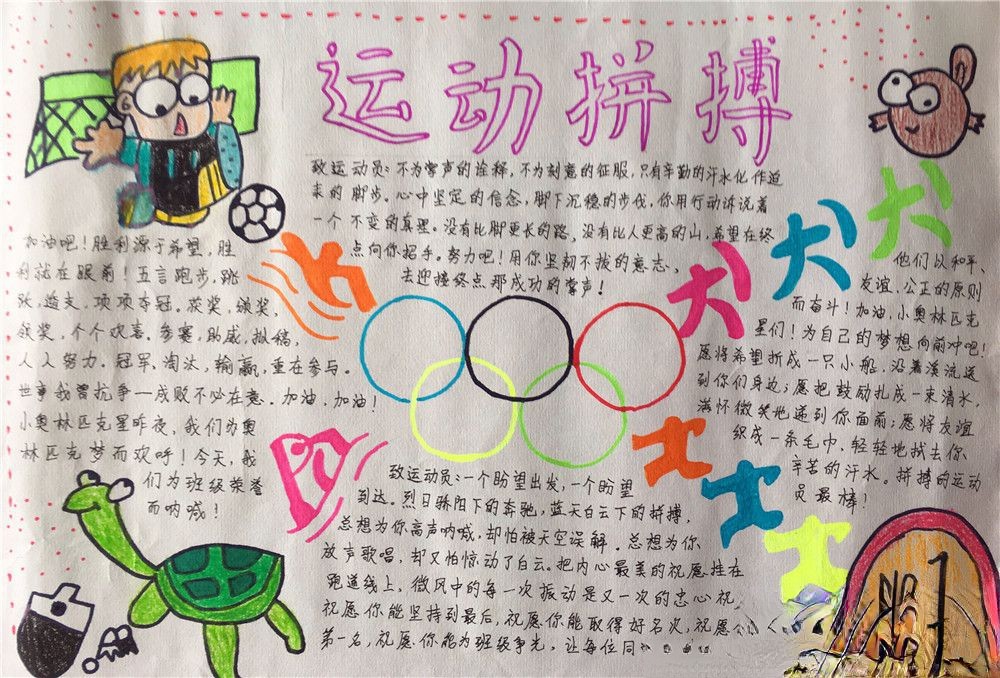 运动拼搏
致运动员：不为掌声的诠释，不为刻意的征服，只有辛勤的汗水化作追
求的脚步。心中坚定的信念，脚下沉稳的步伐，你用行动诉说着
一个不变的真理。没有比脚更长的路，没有比人更高的山，希望在终
点向你招手。努力吧！用你坚韧不拔的意志，
去迎接终点那成功的掌声！
加油吧！胜利源于希望，胜
利就在眼前！五言跑步，跳
张，道支，项项夺冠。获奖，颁奖，
领奖，个个欢喜。参赛，助威，拟稿，
人人努力。冠军，淘汰，输赢，重在参与。
世事我曾抗争一成败不必在意。加油，加油！
小奥林匹克星昨夜，我们为奥
林匹克梦而欢呼！今天，我
们为班级荣誉
而呐喊！
他们以和平、
友谊、公正的原则
而奋斗！加油，小奥林匹克
星们！为自己的梦想向前冲吧！
愿将希望折成一只小船，沿着溪流送
到你们身边；愿把鼓励扎成一束清水，
满怀微笑地递到你面前；愿将友谊
织成一条毛巾，轻轻地拭去你
辛苦的汗水。拼搏的运动
员最棒！
致运动员：一个盼望出发，一个盼望
到达。烈日骄阳下的奔驰，蓝天白云下的拼搏，
总想为你高声呐喊，却怕被天空误解。总想为你
放声歌唱，却又怕惊动了白云。把内心最美的祝愿挂在
跑道线上，微风中的每一次振动是又一次的忠心祝，
祝愿你能坚持到最后，祝愿你能取得好名次，祝愿
第一名，祝愿你能为班级争光，让每位同
NO 1